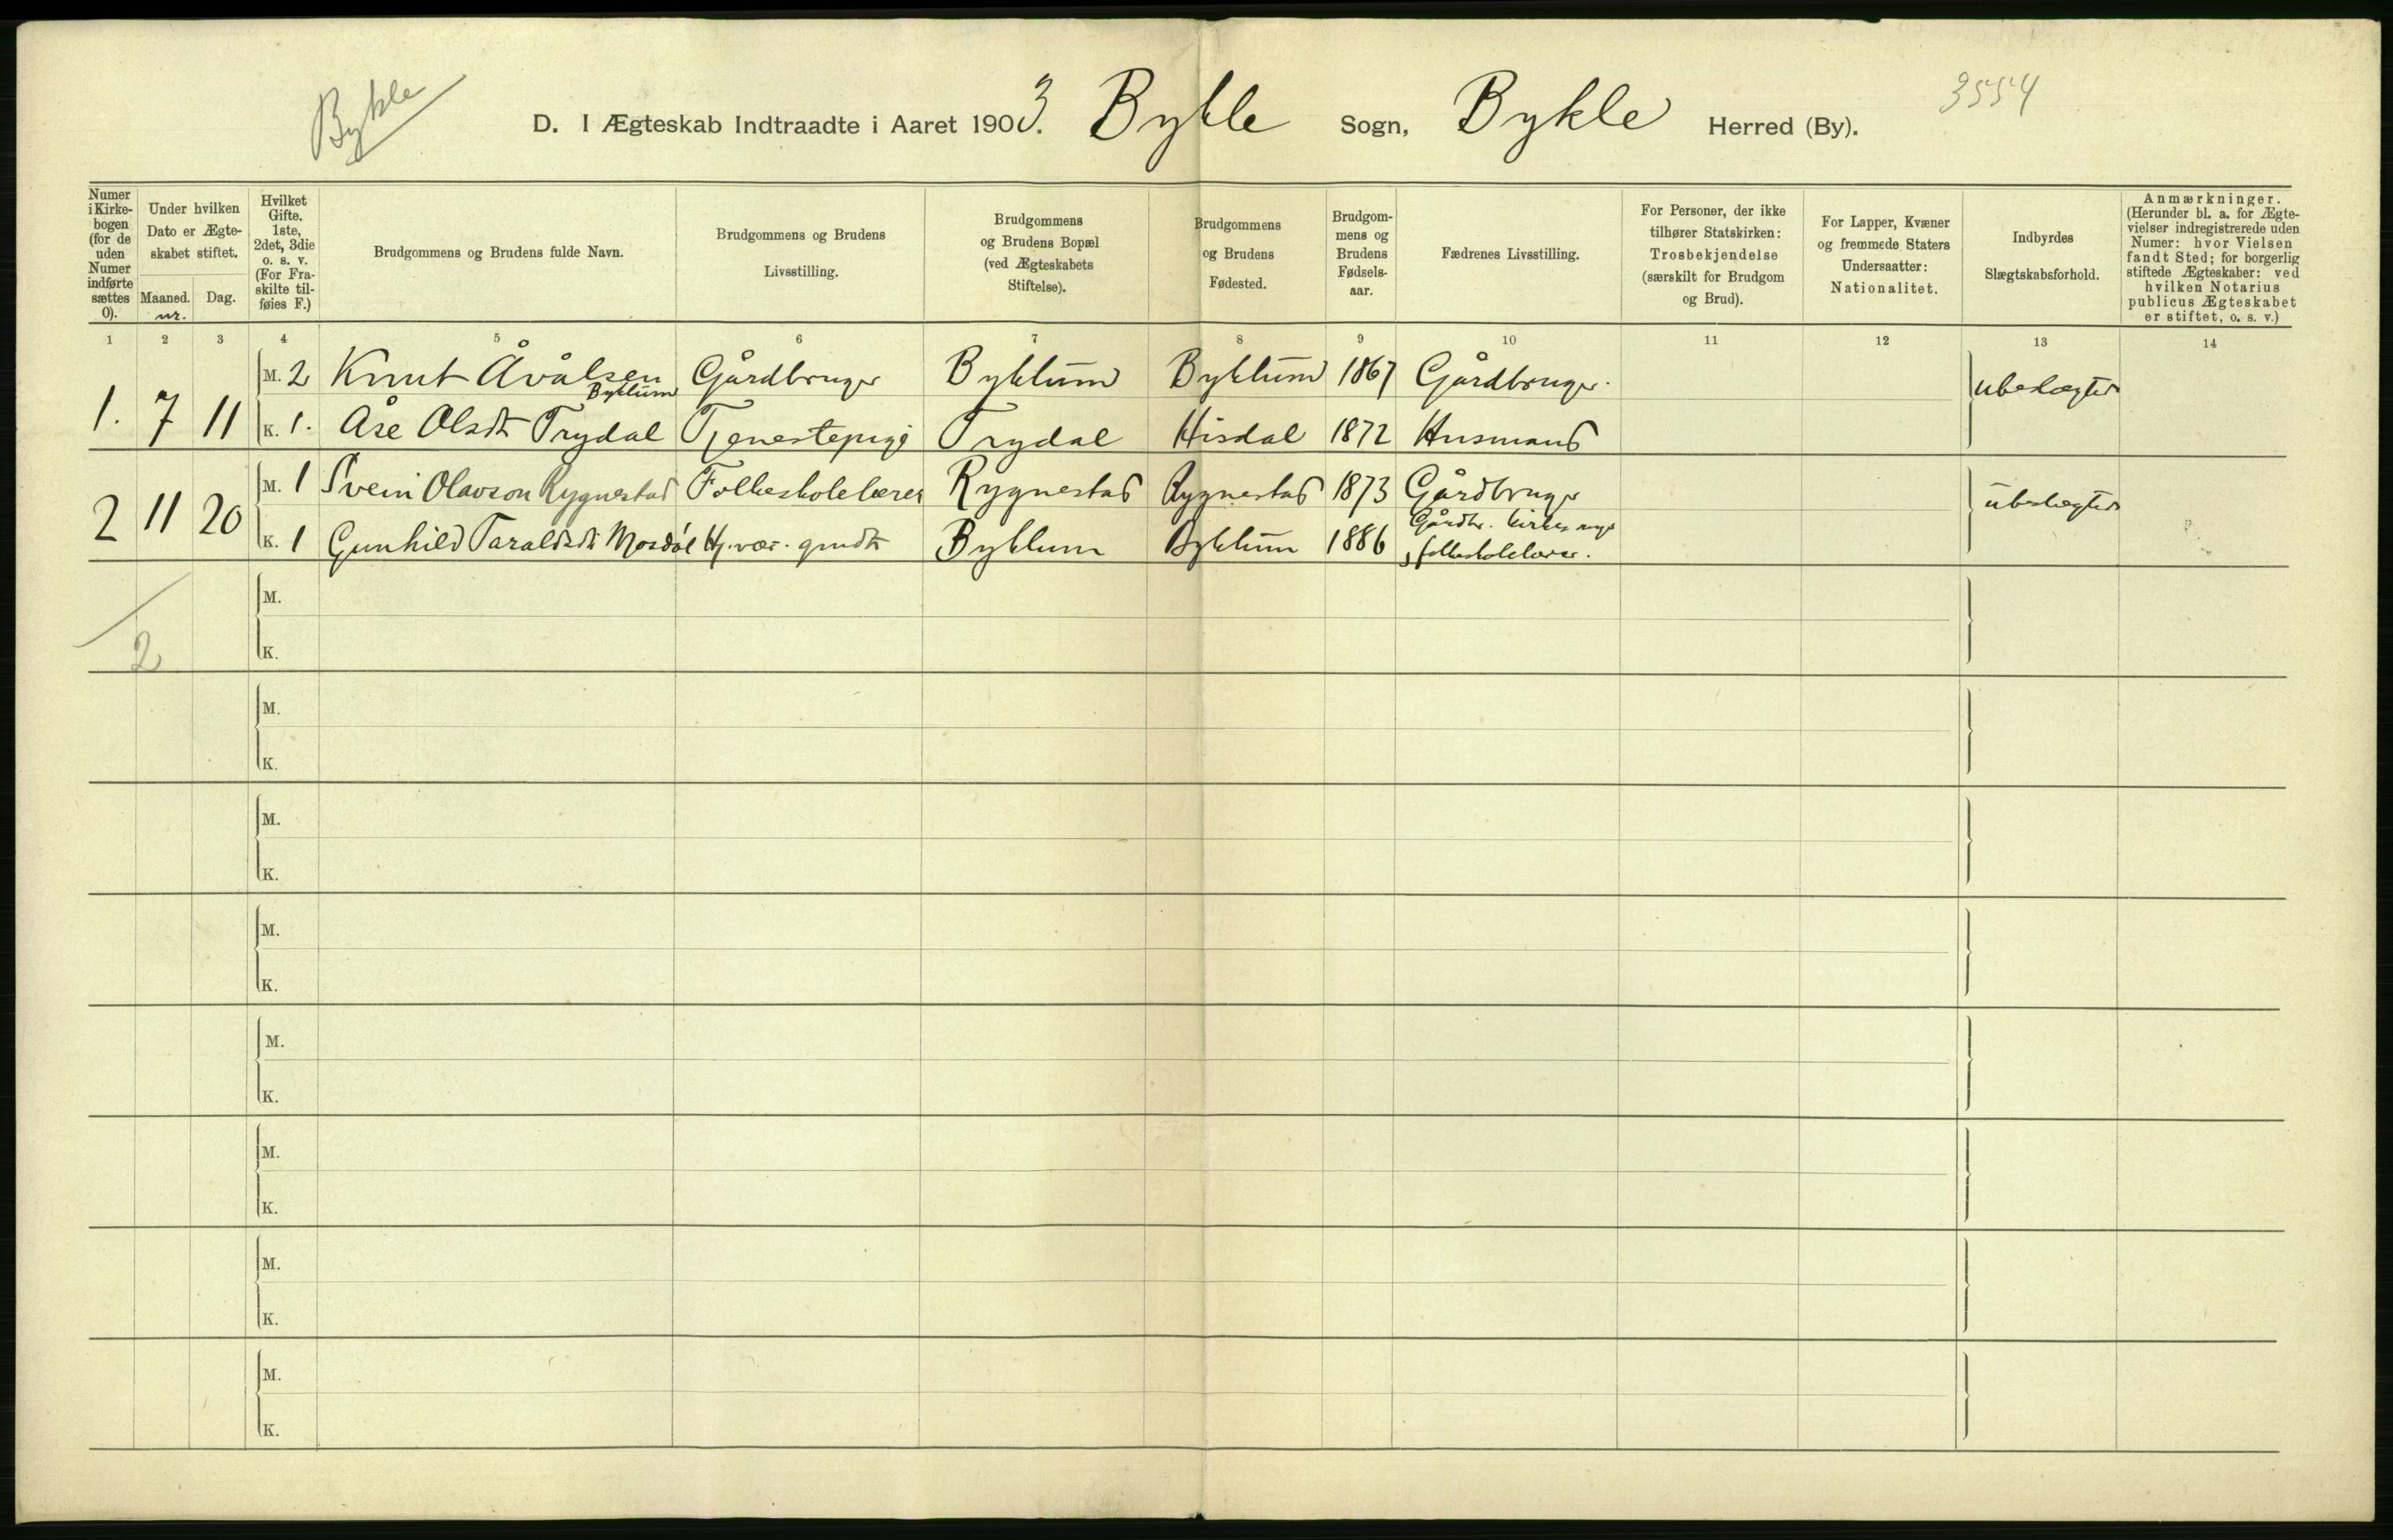 Bykle
3554
D. I Ægteskab Indtraadte i Aaret 1903. Bykle Sogn, Bykle Herred (By).
Numer i Kirkebogen (for de uden Numer indførte sættes 0).
Under hvilken Dato er Ægteskabet stiftet.
Maaned. nr.
Dag.
Hvilket Gifte. 1ste, 2det, 3die o. s. v. (For Fraskilte tilføies F.)
Brudgommens og Brudens fulde Navn.
Brudgommens og Brudens Livsstilling.
Brudgommens og Brudens Bopæl (ved Ægteskabets Stiftelse).
Brudgommens og Brudens Fødested.
Brudgommens og Brudens Fødselsaar.
Fædrenes Livsstilling.
For Personer, der ikke tilhører Statskirken: Trosbekjendelse (særskilt for Brudgom og Brud).
For Lapper, Kvæner og fremmede Staters Undersaatter: Nationalitet.
Indbyrdes Slægtskabsforhold.
Anmærkninger. (Herunder bl. a. for Ægtevielser indregistrerede uden Numer: hvor Vielsen fandt Sted; for borgerlig stiftede Ægteskaber: ved hvilken Notarius publicus Ægteskabet er stiftet, o. s. v.)
1 2 3 4 5 6 7 8 9 10 11 12 13 14
1. 7 11
M. 2 Knut Åvålsen Byklum Gårdbruger Byklum Byklum 1867 Gårdbruger. ubeslægtet
K. 1. Åse Olsdt Trydal Tjenestepige Trydal Hisdal 1872 Husmand
2 11 20
M. 1 Svein Olavson Rygnestad Folkeskolelærer Rygnestad Rygnestad 1873 Gårdbruger ubeslægtet
K. 1 Gunhild Taraldsdt Mosdøl Hj. vær. Byklum Byklum 1886 Gårdbr. folkeskolelærer.
2
M.
K.
M.
K.
M.
K.
M.
K.
M.
K.
M.
K.
M.
K.
M.
K.